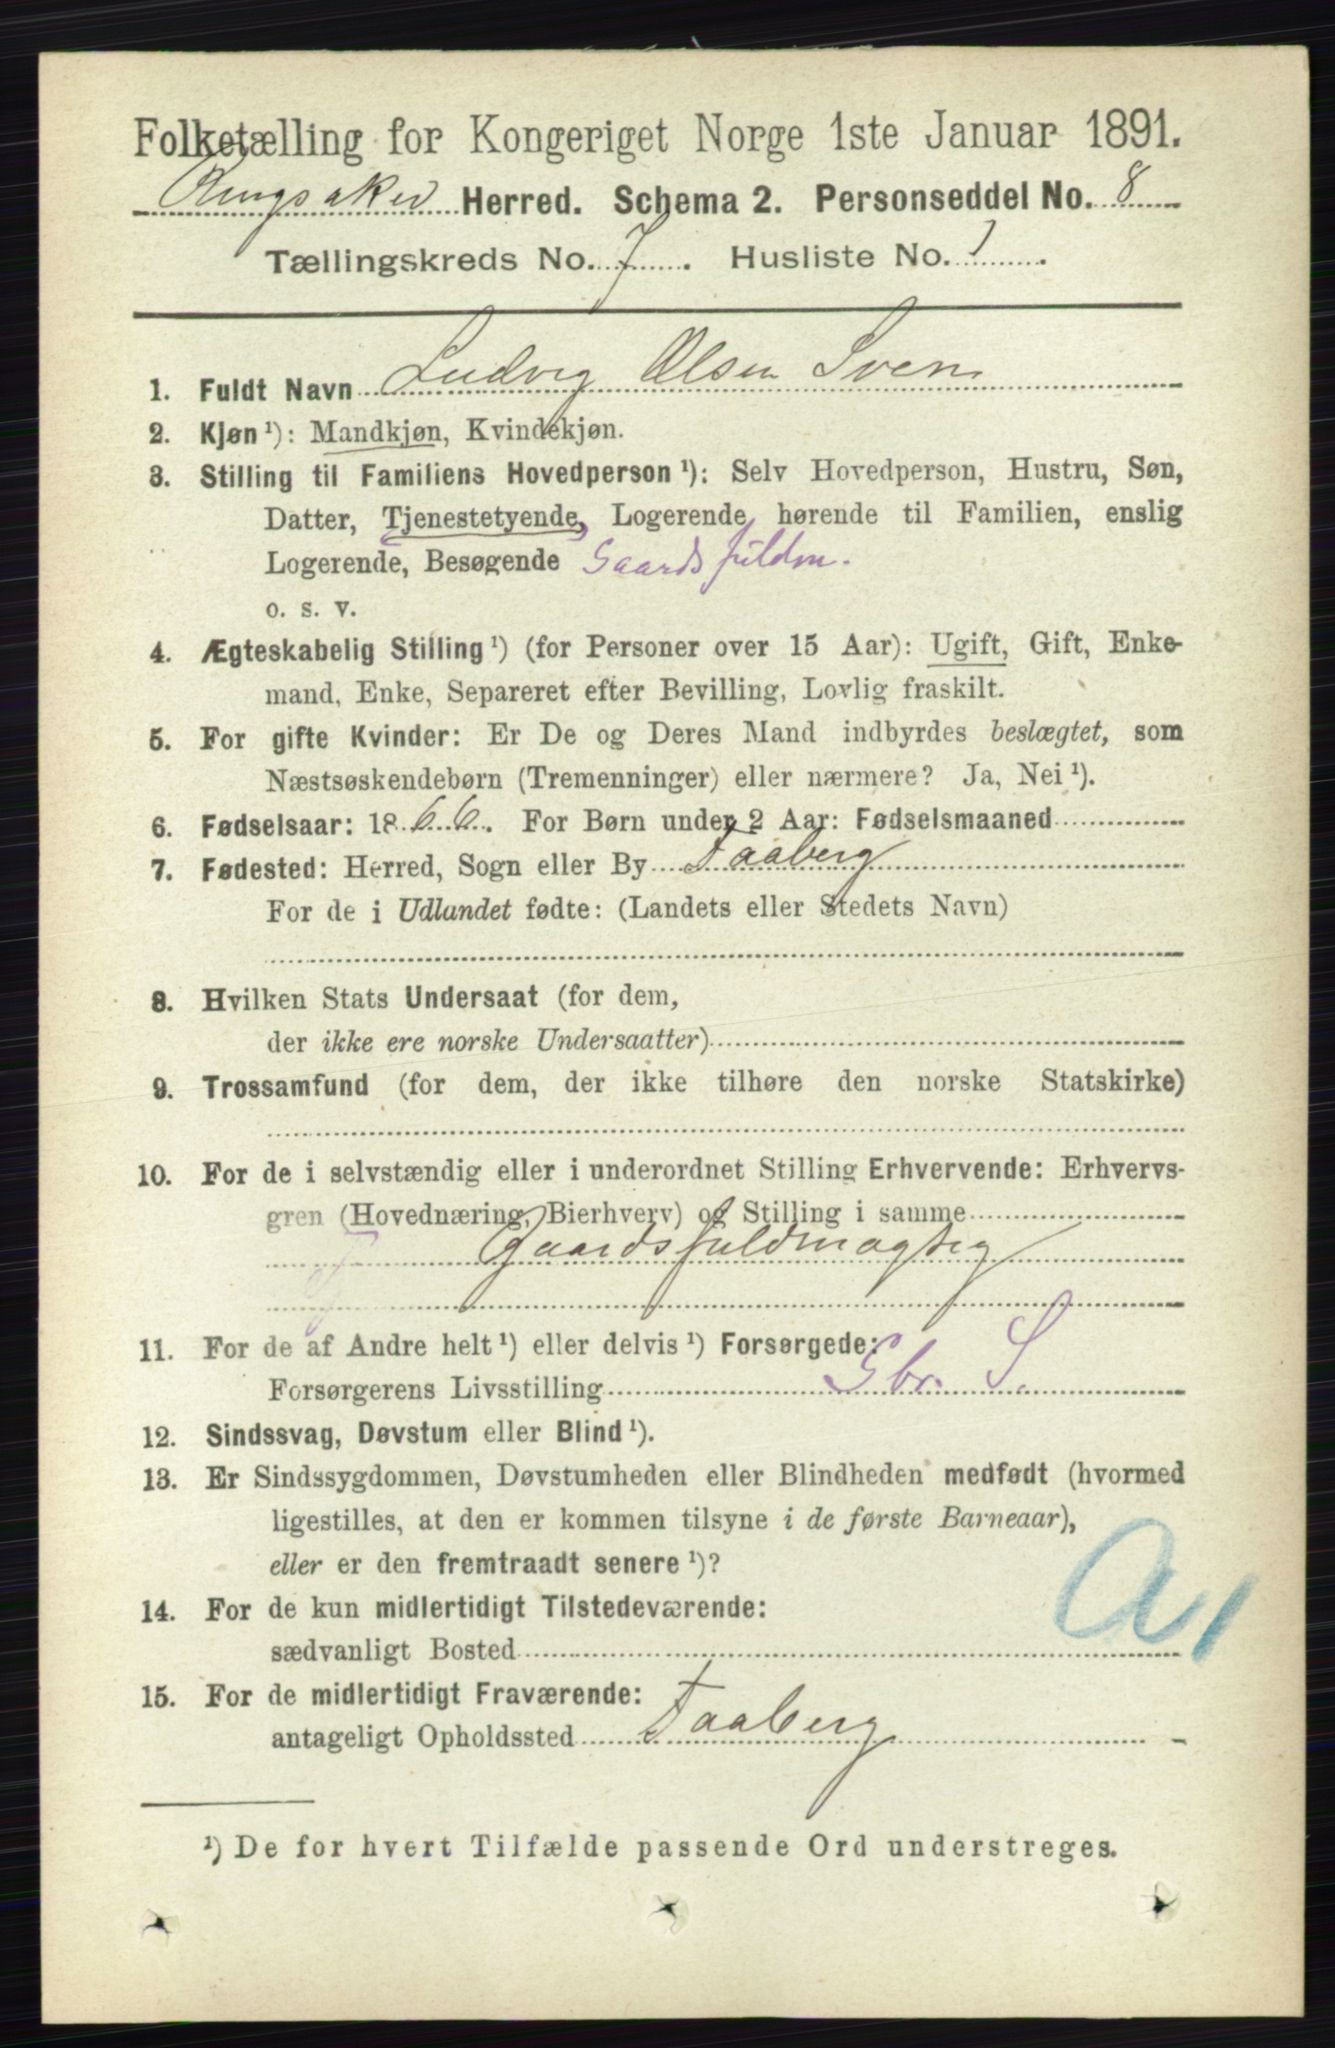 Folketælling for Kongeriget Norge 1ste Januar 1891.
Ringsaker Herred. Schema 2. Personseddel No. 8
Tællingskreds No. 7. Husliste No. 1.
1. Fuldt Navn Ludvig Olsen Sveen
2. Kjøn ¹): Mandkjøn, Kvindekjøn.
3. Stilling til Familiens Hovedperson ¹): Selv Hovedperson, Hustru, Søn,
Datter, Tjenestetyende, Logerende hørende til Familien, enslig
Logerende, Besøgende Gaardsfuldm.
o. s. v.
4. Ægteskabelig Stilling ¹) (for Personer over 15 Aar): Ugift, Gift, Enke-
mand, Enke, Separeret efter Bevilling, Lovlig fraskilt.
5. For gifte Kvinder: Er De og Deres Mand indbyrdes beslægtet, som
Næstsøskendebørn (Tremenninger) eller nærmere? Ja, Nei ¹).
6. Fødselsaar: 1866. For Børn under 2 Aar: Fødselsmaaned
7. Fødested: Herred, Sogn eller By Faaberg
For de i Udlandet fødte: (Landets eller Stedets Navn)
8. Hvilken Stats Undersaat (for dem,
der ikke ere norske Undersaatter)
9. Trossamfund (for dem, der ikke tilhøre den norske Statskirke)
10. For de i selvstændig eller i underordnet Stilling Erhvervende: Erhvervs-
gren (Hovednæring, Bierhverv) og Stilling i samme
Gaardsfuldmægtig
11. For de af Andre helt ¹) eller delvis ¹) Forsørgede:
Forsørgerens Livsstilling Gbr. S.
12. Sindssvag, Døvstum eller Blind ¹).
13. Er Sindssygdommen, Døvstumheden eller Blindheden medfødt (hvormed
ligestilles, at den er kommen tilsyne i de første Barneaar),
eller er den fremtraadt senere ¹)?
14. For de kun midlertidigt Tilstedeværende:
sædvanligt Bosted
a1
15. For de midlertidigt Fraværende:
antageligt Opholdssted Faaberg
¹) De for hvert Tilfælde passende Ord understreges.